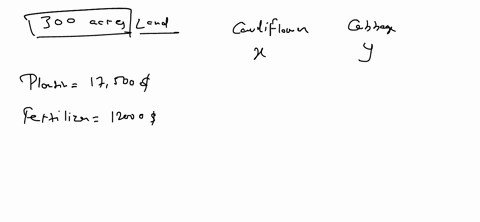 300 acres Land
Cauliflower Cabbage
x y
Plantin = 17,500 $
Fertilizer = 12000 $